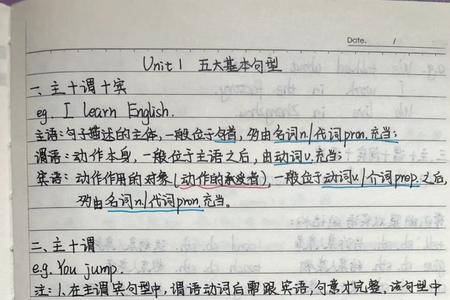 Date. /
Unit 1 五大基本句型
一、主+谓+宾
eg. I learn English.
主语:句子描述的主体,一般位于句首,多由名词n./代词pron.充当;
谓语:动作本身,一般位于主语之后,由动词v.充当;
宾语:动作作用的对象(动作的承受者),一般位于动词v./介词prep.之后,
多由名词n./代词pron.充当。
二、主+谓
e.g. You jump.
注:1.在主谓宾句型中,谓语动词后需跟宾语,句意才完整,该句型中